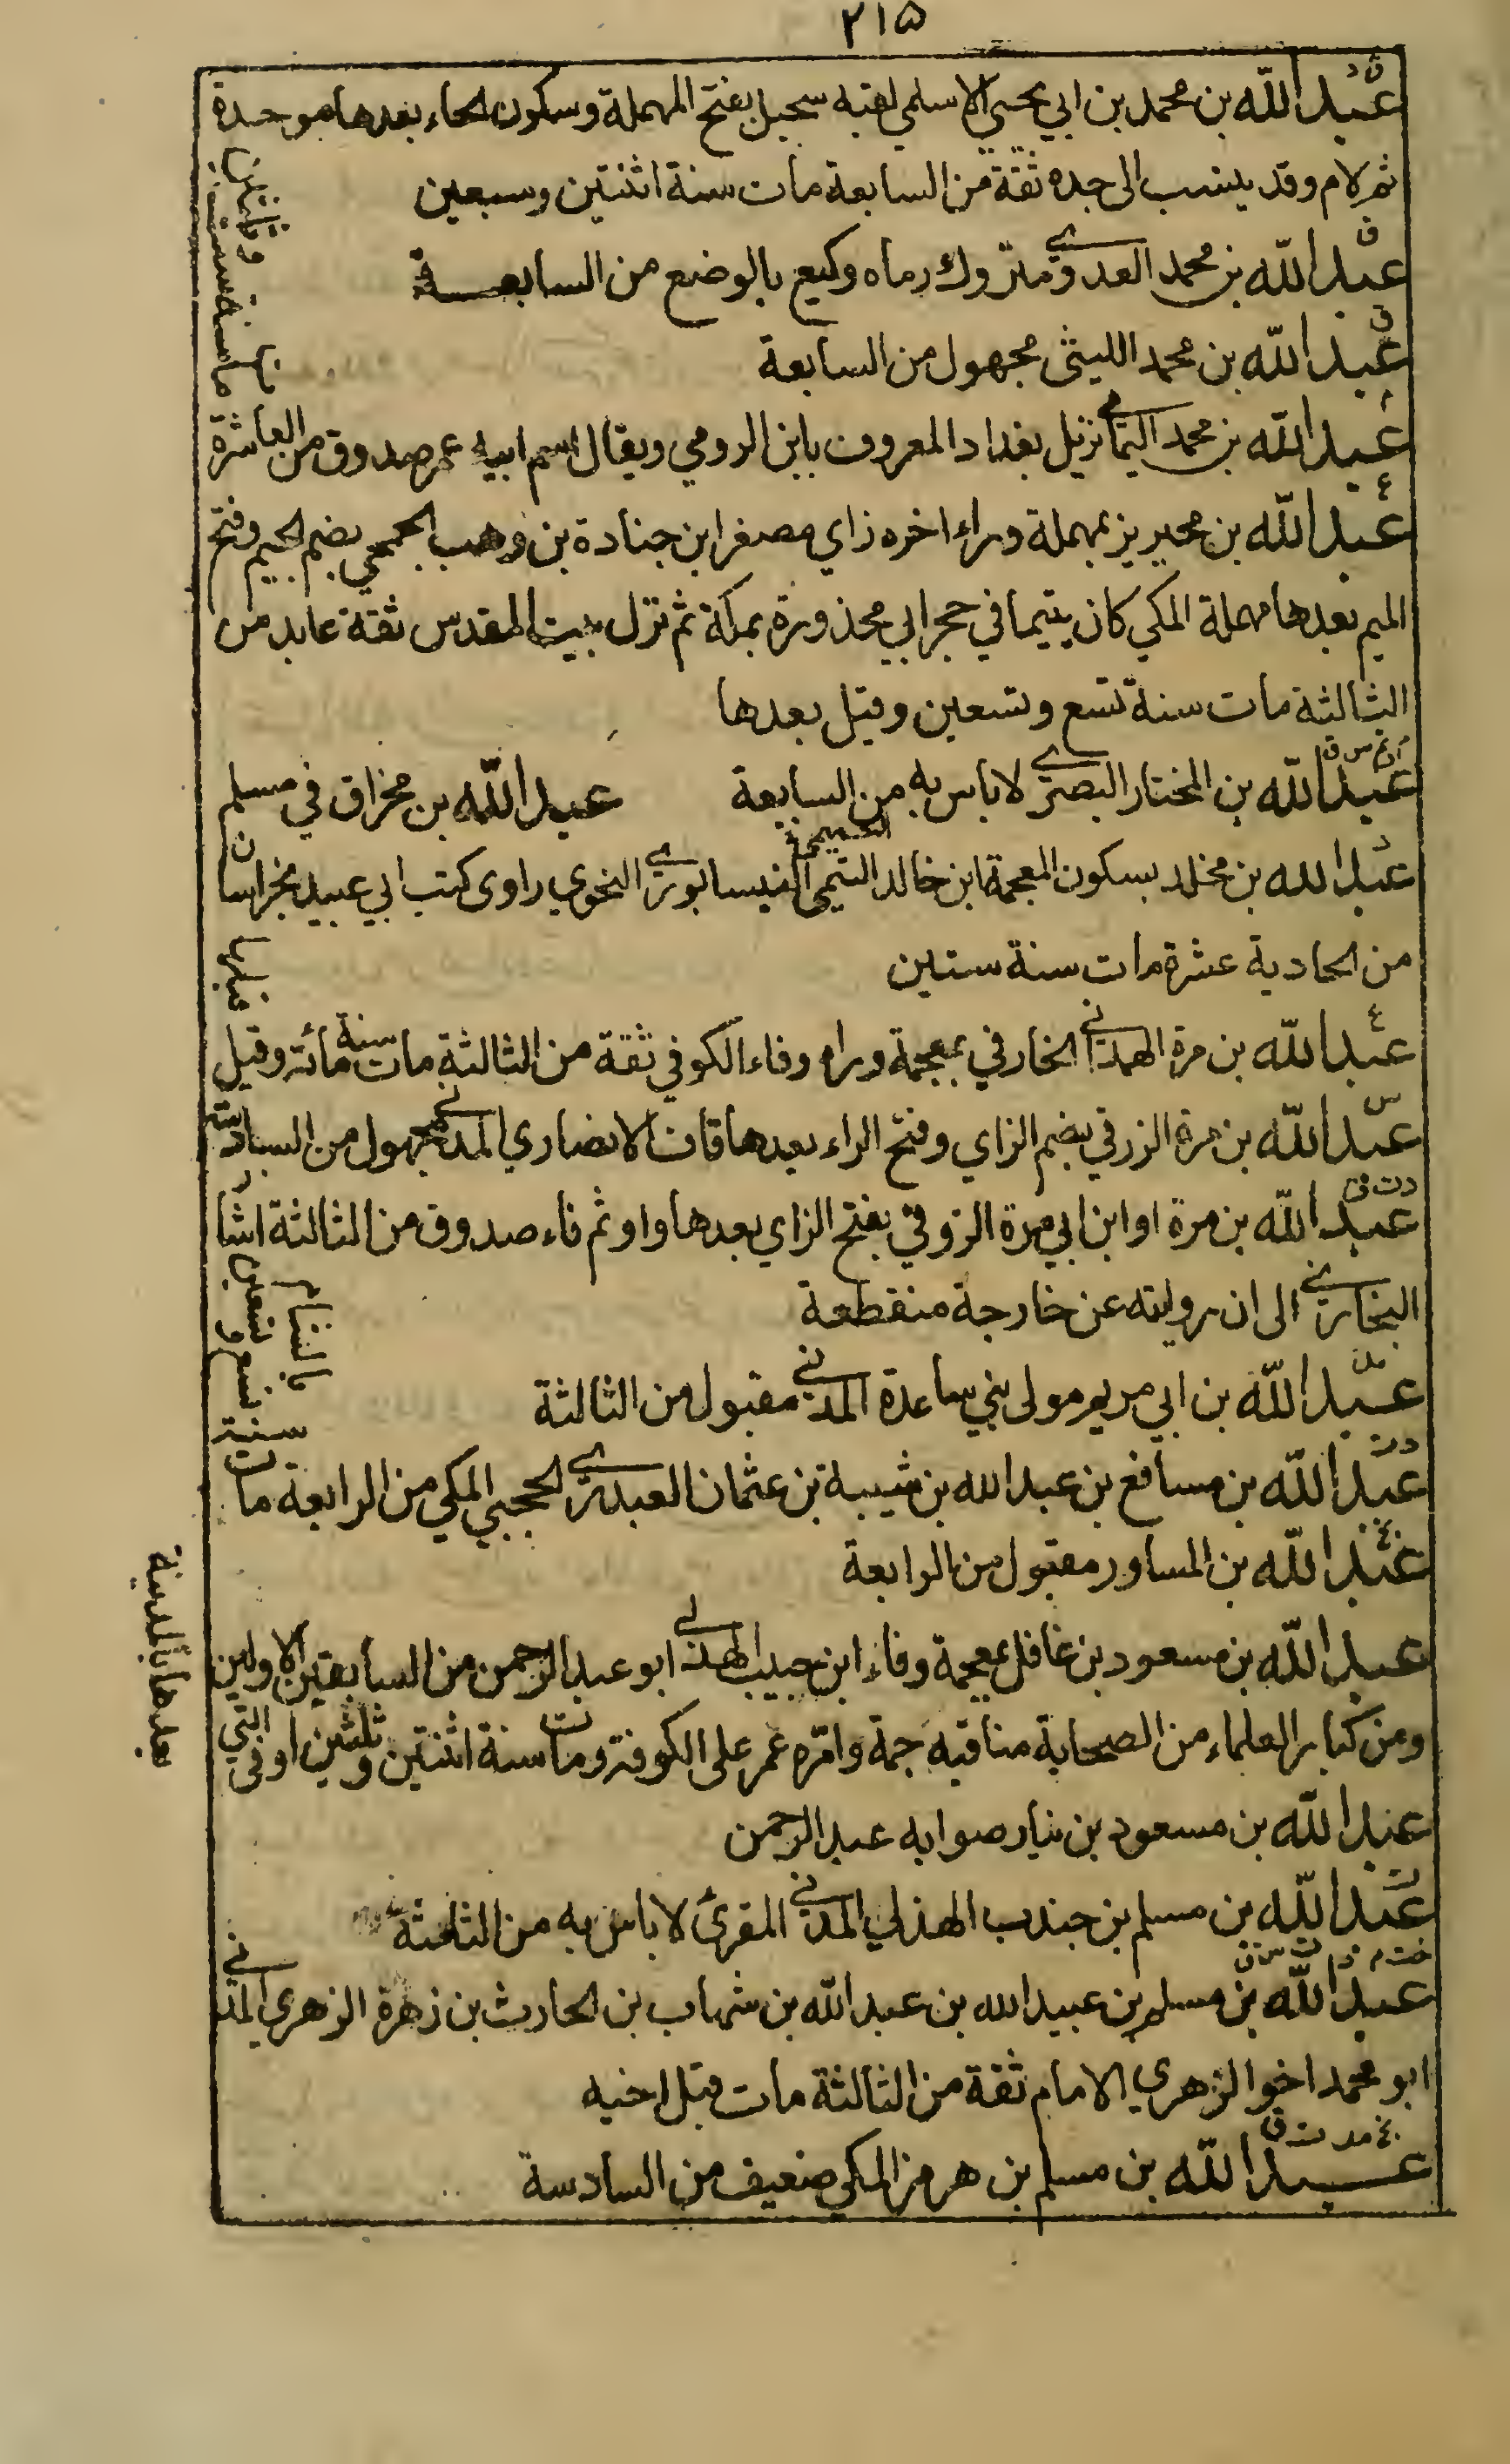 ٢١٥
د ق
عبد الله بن محمد بن ابي يحيى الاسلمي لقبه سحبل بفتح المهملة وسكون الحاء بعدها موحدة
ثم لام وقد ينسب الى جده ثقة من السابعة مات سنة اثنتين وسبعين
ق
عبد الله بن محمد العدوي متروك رماه وكيع بالوضع من السابعـــة
ق
عبد الله بن محمد الليثي مجهول من السابعة
م
عبد الله بن محمد اليمامي نزيل بغداد المعروف بابن الرومي ويقال اسم ابيه عمر صدوق من العاشرة
مات سنة ست وثلثين
٤
عبد الله بن محيريز بمهملة وراء اخره زاي مصغرا بن جنادة بن وهب الجمحي بضم الجيم وفتح
الميم بعدها مهملة المكي كان يتيما في حجر ابي محذورة بمكة ثم نزل بيت المقدس ثقة عابد من
الثالثة مات سنة تسع وتسعين وقيل بعدها
عبد الله بن المختار البصري لا باس به من السابعة عبد الله بن مخراق في مسلم
د
عبد الله بن مخلد بسكون المعجمة ابن خالد التميمي النيسابوري النحوي راوي كتب ابي عبيد بخراسان
من الحادية عشرة مات سنة ستين
٤
عبد الله بن مرة الهمداني الخارفي بمعجمة وراء وفاء الكوفي ثقة من الثالثة مات سنة مائة وقيل
قبلها
س
عبد الله بن مرة الزرقي بضم الزاي وفتح الراء بعدها قاف الانصاري المدني مجهول من السادسة
د ت ق
عبد الله بن مرة او ابن ابي مرة الزوفي بفتح الزاي بعدها واو ثم فاء صدوق من الثالثة اشار
البخاري الى ان روايته عن خارجة منقطعة
عبد الله بن ابي مريم مولى بني ساعدة المدني مقبول من الثالثة
د ت
عبد الله بن مسافع بن عبد الله بن شيبة بن عثمان العبدري الحجبي المكي من الرابعة مات
سنة تسع وتسعين بالشام
عبد الله بن المساور مقبول من الرابعة
عبد الله بن مسعود بن غافل بمعجمة وفاء ابن حبيب الهذلي ابو عبد الرحمن من السابقين الاولين
ومن كبار العلماء من الصحابة مناقبه جمة وامّره عمر على الكوفة ومات سنة اثنتين وثلثين او في التي
بعدها بالمدينة
عبد الله بن مسعود بن نيار صوابه عبد الرحمن
ت
عبد الله بن مسلم بن جندب الهذلي المدني المقرئ لا باس به من الثامنة
خت م د ت س ق
عبد الله بن مسلم بن عبيد الله بن عبد الله بن شهاب بن الحارث بن زهرة الزهري المدني
ابو محمد اخو الزهري الامام ثقة من الثالثة مات قبل اخيه
بخ مد ت ق
عبـــد الله بن مسلم بن هرمز المكي ضعيف من السادسة